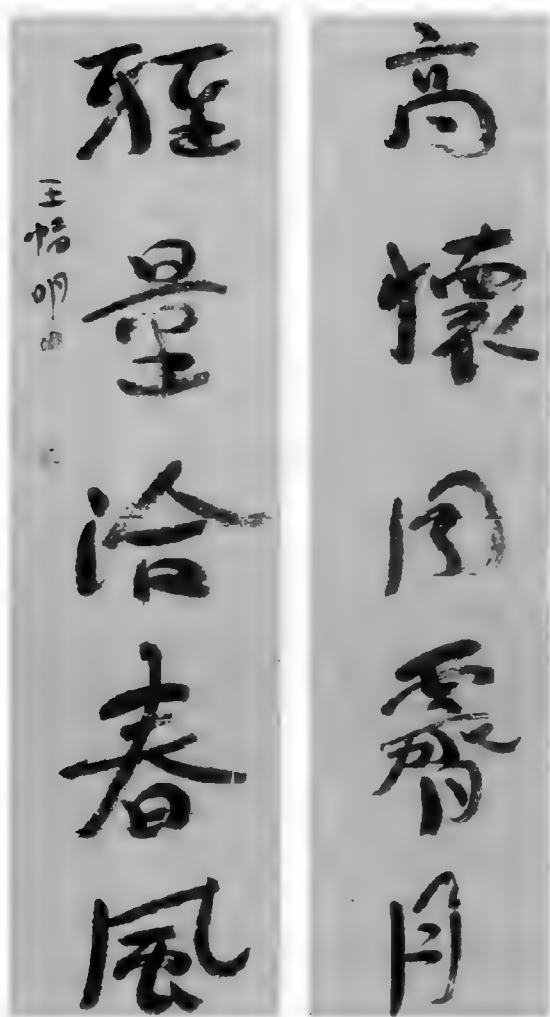 高懷同霽月
雅量洽春風
王明